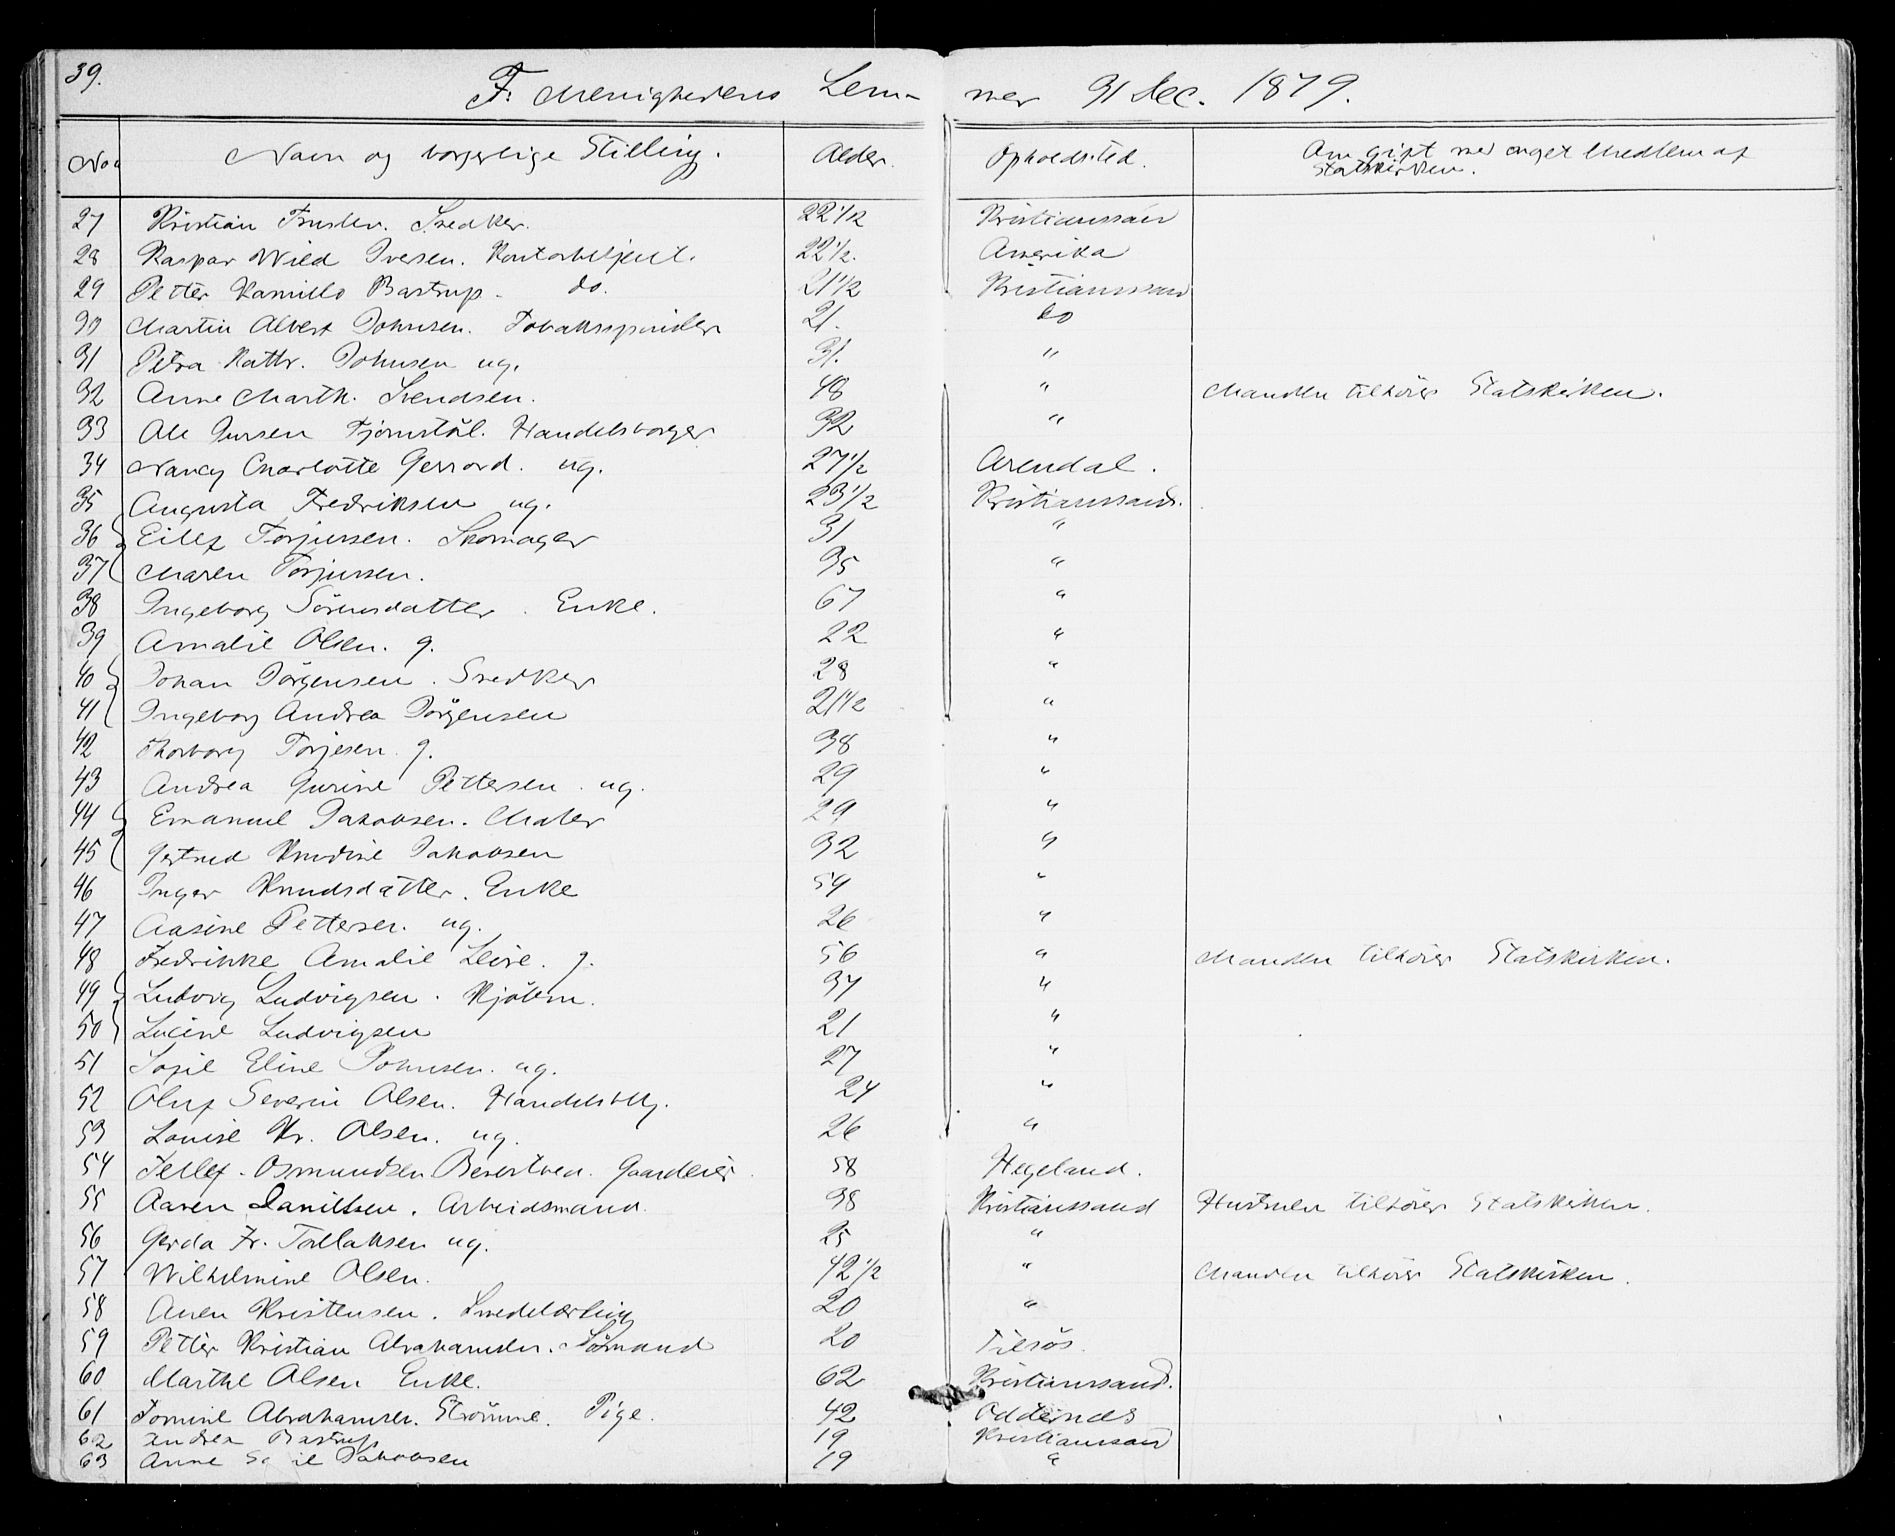 39.
F. Menighedens Lem- mer 31 Dec. 1879.
No. Navn og borgerlige Stilling. Alder. Opholdsted. Om gift med noget Medlem af Statskirken.
27 Kristian Snedker. 22 1/2 Kristianssand
28 Kaspar Wild Iversen. Kontorbetjent. 22 1/2. Amerika
29 Petter Kamillo Bastrup. do. 21 1/2 Kristianssand
30 Martin Albert Johnsen. Tobakspinder 21. do
31 Petra Kathr. Johnsen ug. 31. "
32 Anne Marth. Svendsen. 48 " Manden tilhører Statskirken.
33 Ole Gursen Fjermstål. Handelsborger 32 "
34 Nancy Charlotte Gerrard. ug. 27 1/2 Arendal.
35 Augusta Fredriksen ug. 23 1/2 Kristianssand.
36 Eilef Torjussen. Skomager 31 "
37 Maren Torjussen. 35 "
38 Ingeborg Sörensdatter. Enke. 67 "
39 Amalie Olsen. g. 22 "
40 Johan Jörgensen. Snedker 28 "
41 Ingeborg Andrea Jörgensen 21 1/2 "
42 Thorborg Torjesen. g. 38 "
43 Andrea Gurine Pettersen. ug. 29 "
44 Emanuel Jakobsen. Maler 29 "
45 Gertrud Knudine Jakobsen 32 "
46 Inger Knudsdatter. Enke 54 "
47 Aasine Pettersen. ug. 26 "
48 Fredrikke Amalie Leire. g. 56 " Manden tilhører Statskirken.
49 Ludvig Ludvigsen. Kjöbm. 37 "
50 Lucine Ludvigsen 21 "
51 Sofie Eline Johnsen. ug. 27 "
52 Oluf Severin Olsen. Handelsbetj. 24 "
53 Louise Kr. Olsen. ug. 26 "
54 Tellef Osmundsen Gaardeier. 58 Hegeland.
55 Aaren Danielsen. Arbeidsmand. 38 Kristianssand Hustruen tilhører Statskirken.
56 Gerda Fr. Tallaksen ug. 25 "
57 Wilhelmine Olsen. 42 1/2 " Manden tilhører Statskirken.
58 Anen Kristensen. Smedelærling 20 "
59 Petter Kristian Abrahamsen. Sömand 20 Tilsös.
60 Marthe Olsen Enke. 62 Kristianssand.
61 Tomine Abrahamsen. Strömme. Pige. 42 Oddernæs
62 Andrea Bastrup 19 Kristianssand
63 Anne Jakobsen 19 "